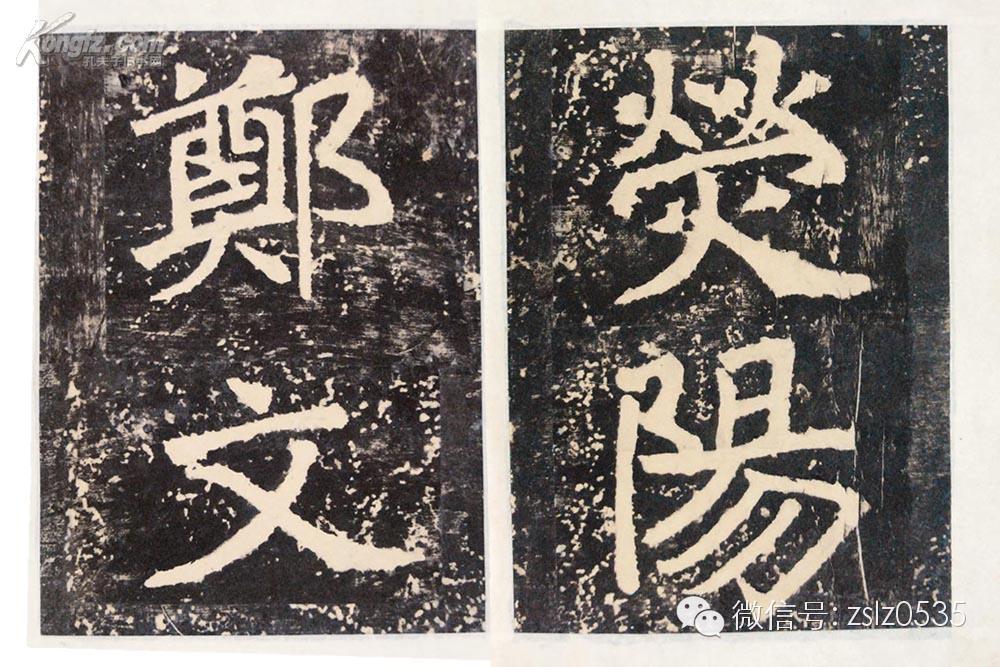 熒陽
鄭文
Kongfz.com
孔夫子旧书网
微信号: zslz0535